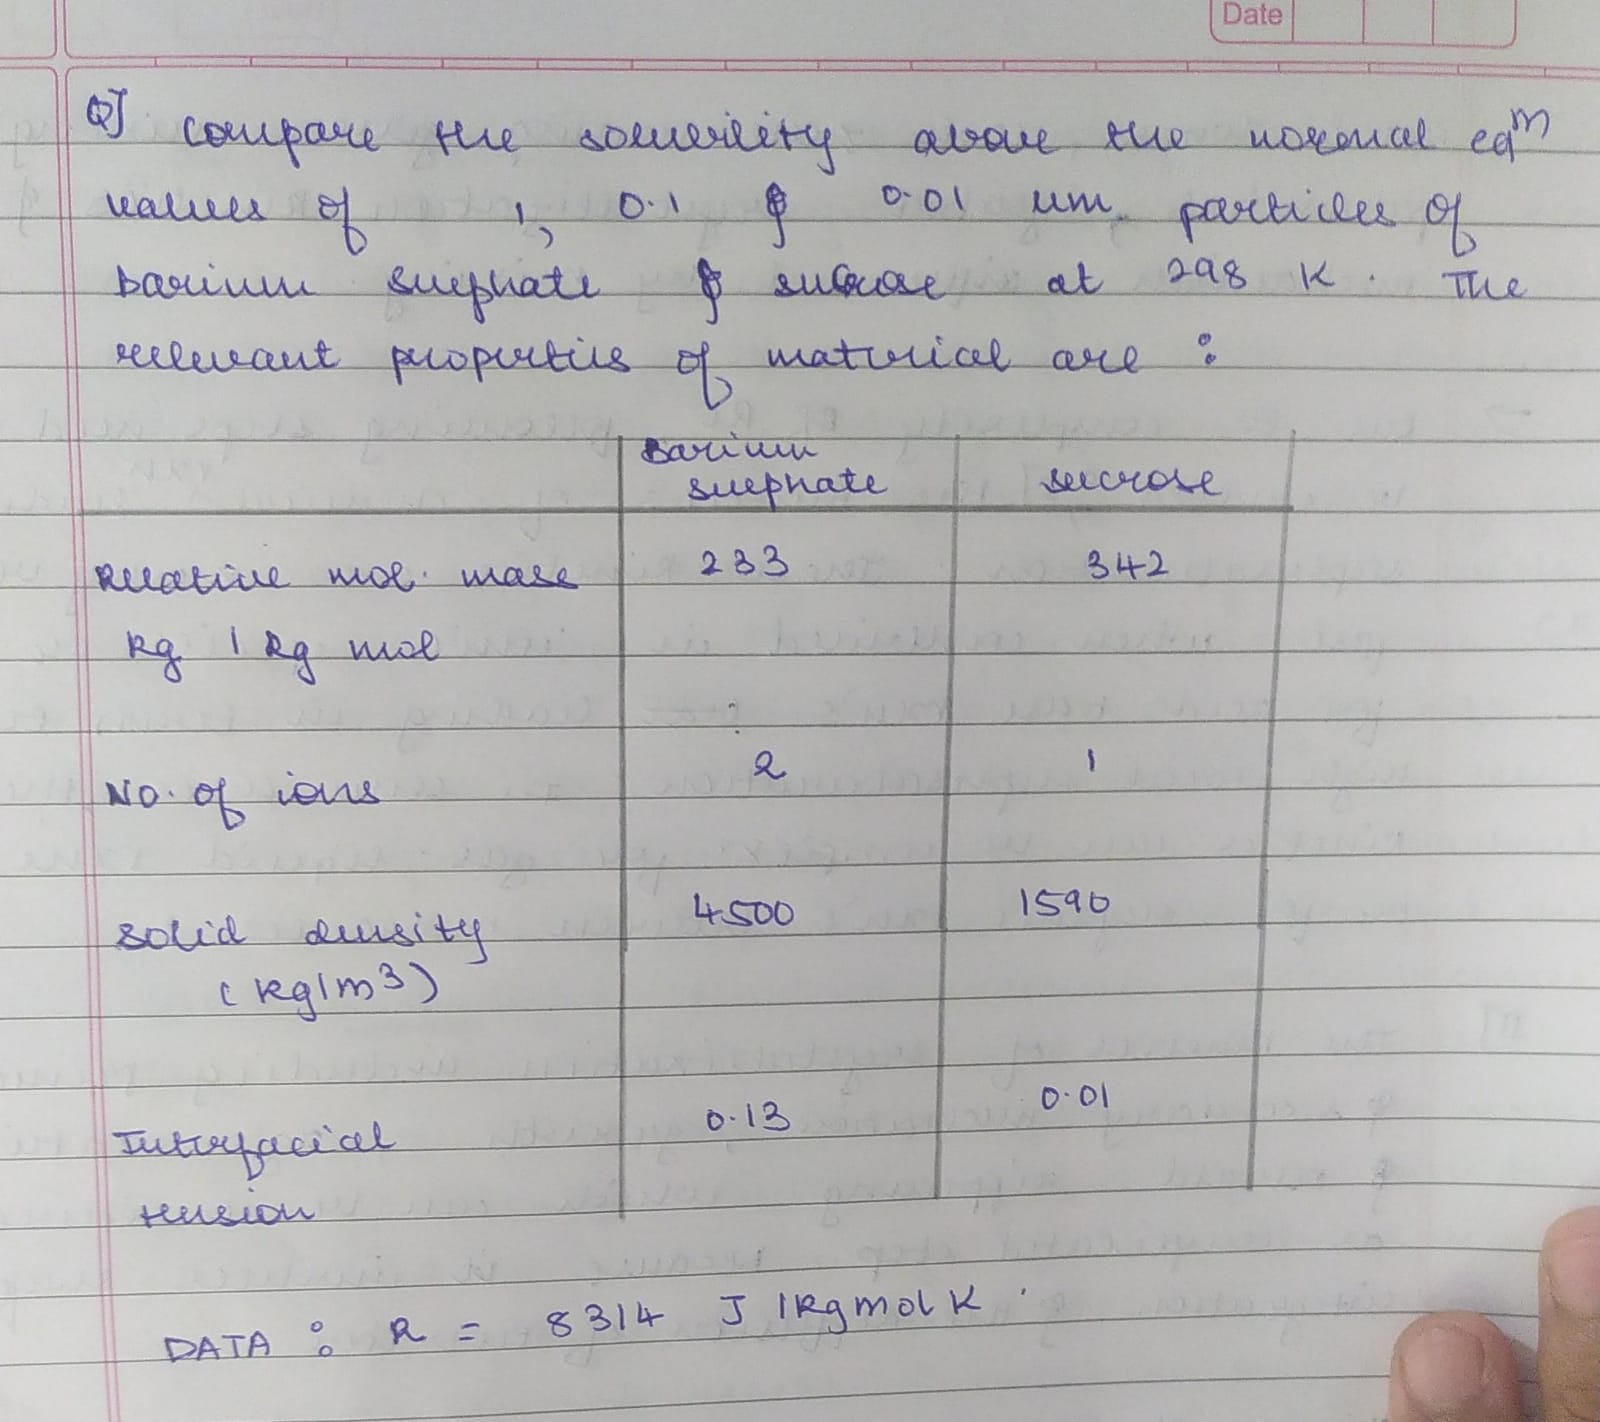 Date
Q] compare the solubility above the normal eqm
values of 1, 0.1 & 0.01 um particles of
barium sulphate & sucrose at 298 K. The
relevant properties of material are :
Barium
sulphate sucrose
Relative mol. mass 233 342
kg / kg mol
No. of ions 2 1
solid density 4500 1590
(kg/m3)
Interfacial 0.13 0.01
tension
DATA : R = 8314 J/kgmol K.